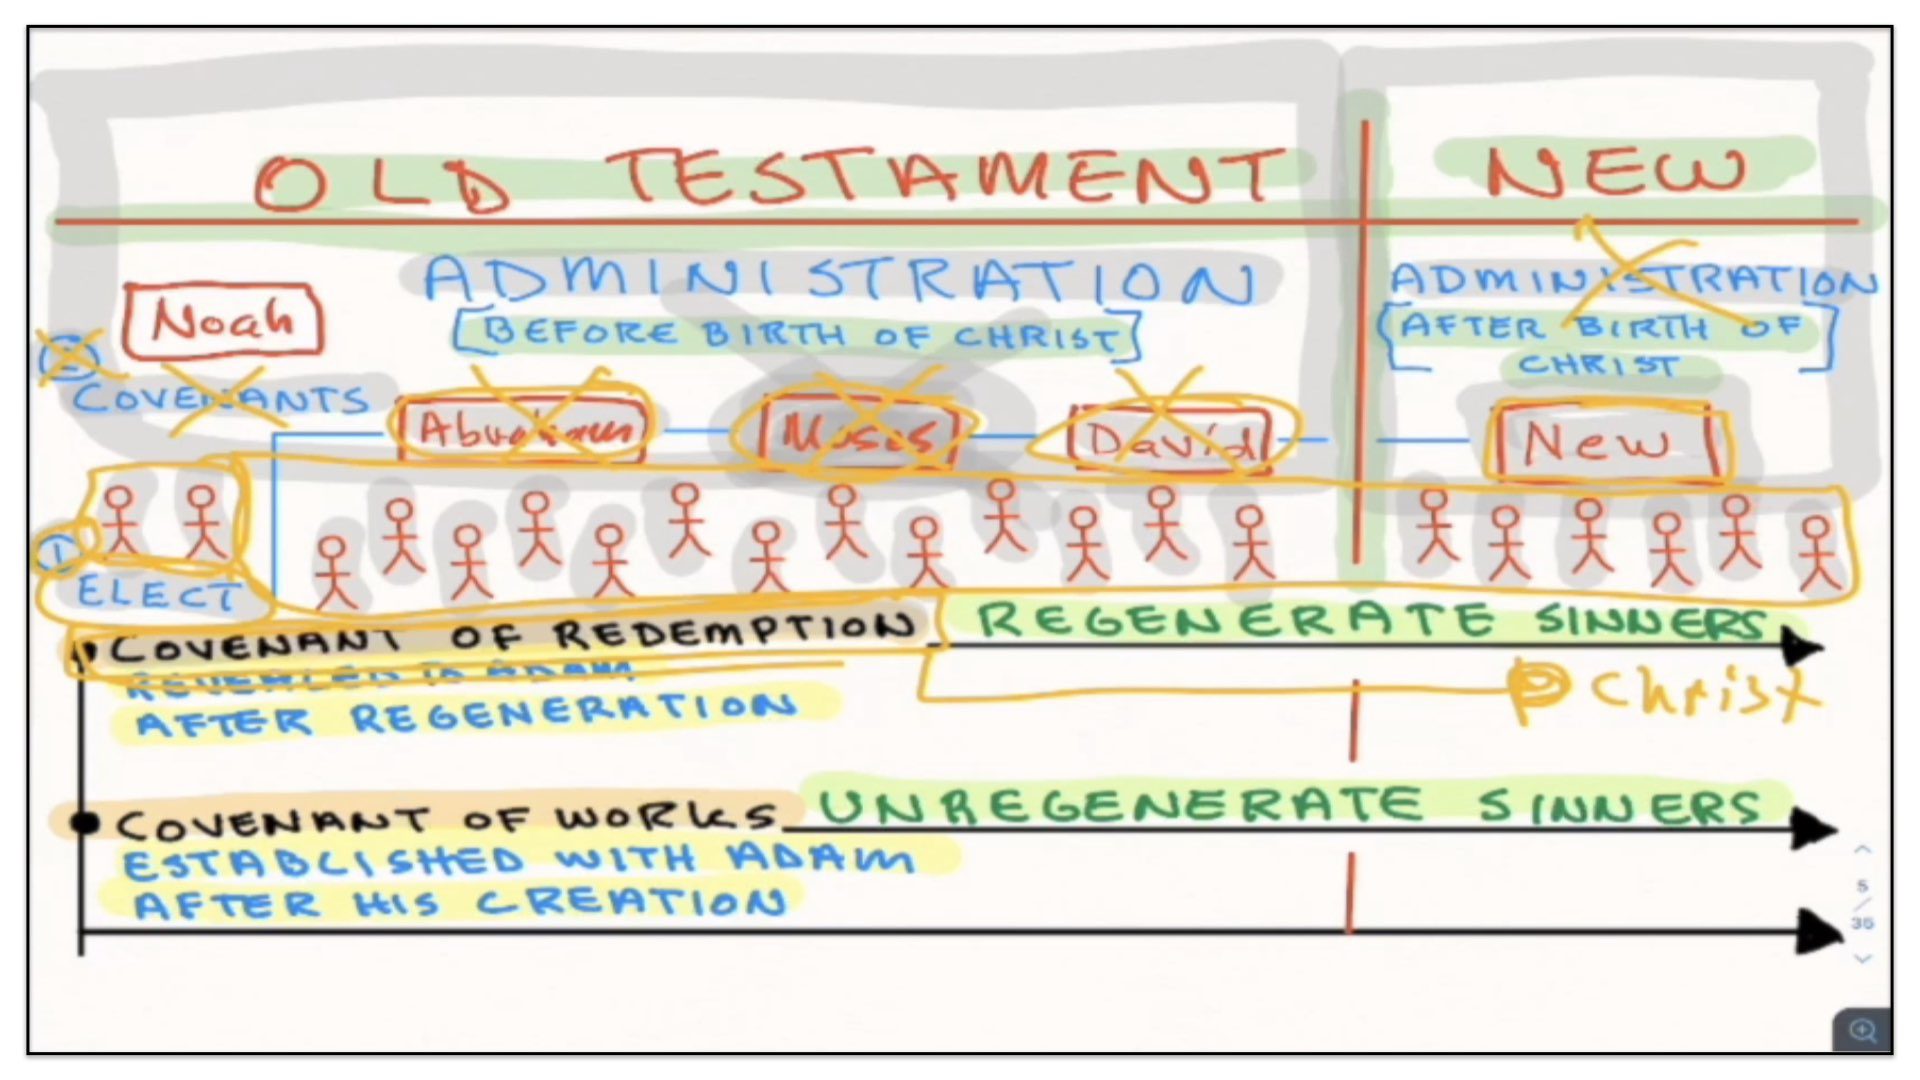 OLD TESTAMENT NEW
ADMINISTRATION ADMINISTRATION
Noah [BEFORE BIRTH OF CHRIST] [AFTER BIRTH OF
CHRIST]
2
COVENANTS Abraham Moses David New
1
ELECT
COVENANT OF REDEMPTION REGENERATE SINNERS
REVEALED TO ADAM
AFTER REGENERATION Christ
COVENANT OF WORKS UNREGENERATE SINNERS
ESTABLISHED WITH ADAM
AFTER HIS CREATION
5
/
35